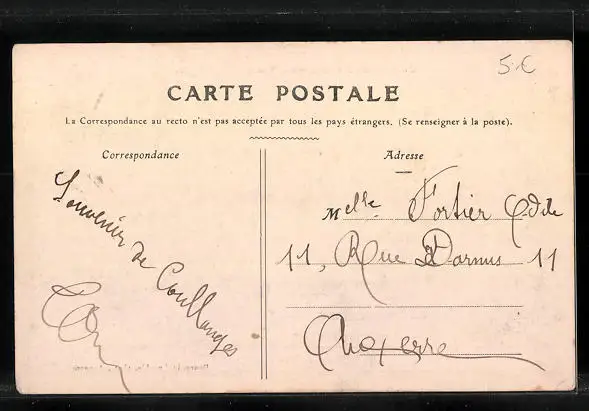 5 €
CARTE POSTALE
La Correspondance au recto n'est pas acceptée par tous les pays étrangers. (Se renseigner à la poste).
Correspondance
Adresse
Souvenir de Coullanges
Melle Fortier Odile
11, Rue Darnus 11
Auxerre